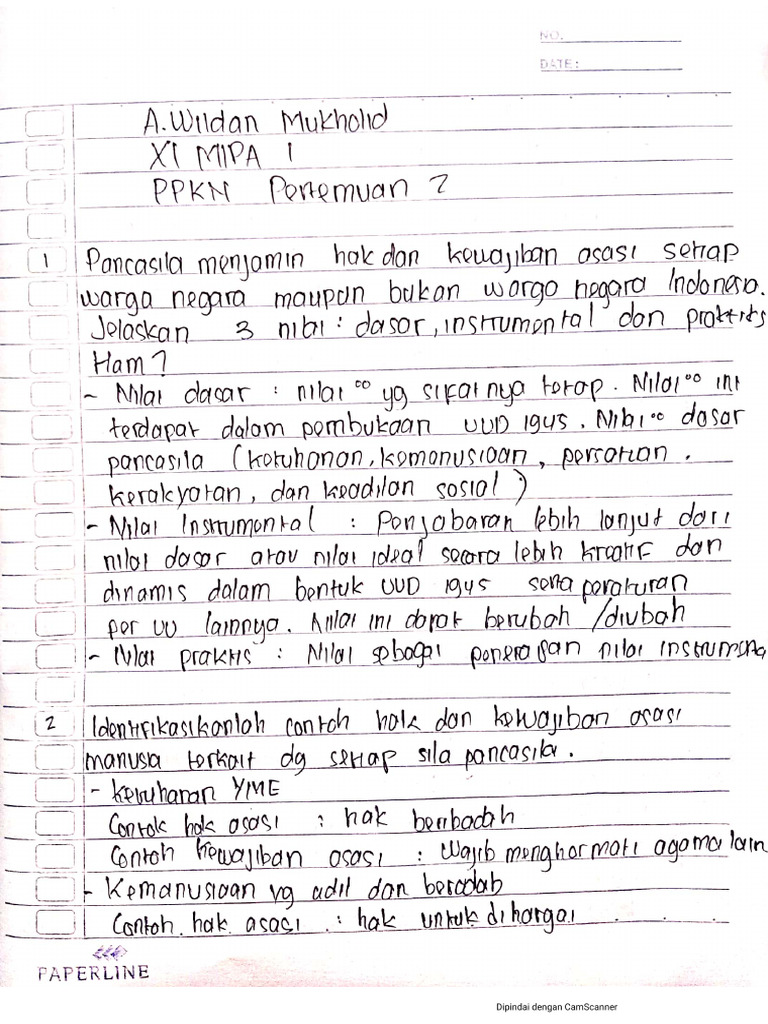 NO.
DATE:
A. Wildan Mukholid
XI MIPA 1
PPKN Pertemuan 2
1 Pancasila menjamin hak dan kewajiban asasi setiap
warga negara maupun bukan warga negara Indonesia.
Jelaskan 3 nilai : dasor, instrumental dan praktis
Ham ?
- Nilai dasar : nilai°° yg sifatnya tetap. Nilai°° ini
terdapat dalam pembukaan UUD 1945. Nilai°° dasar
pancasila (ketuhanan, kemanusiaan, persatuan,
kerakyatan, dan keadilan sosial)
- Nilai Instrumental : Penjabaran lebih lanjut dari
nilai dasar atau nilai ideal secara lebih kreatif dan
dinamis dalam bentuk UUD 1945 serta peraturan
per UU lainnya. Nilai ini dapat berubah /diubah
- Nilai praktis : Nilai sebagai penerapan nilai instrumenta
2 Identifikasikanlah contoh hak dan kewajiban asasi
manusia terkait dg setiap sila pancasila.
- Ketuhanan YME
Contoh hak asasi : hak beribadah
Contoh kewajiban asasi : wajib menghormati agama lain
- Kemanusiaan yg adil dan beradab
Contoh hak asasi : hak untuk dihargai
PAPERLINE
Dipindai dengan CamScanner